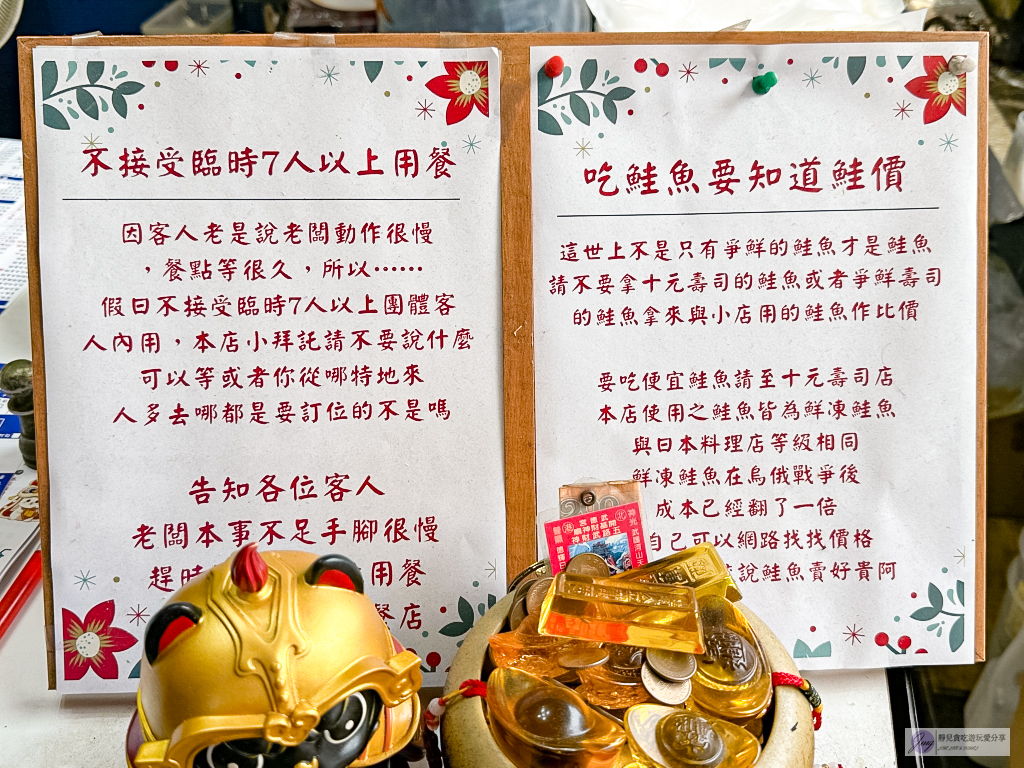 不接受臨時7人以上用餐
因客人老是說老闆動作很慢
，餐點等很久，所以⋯⋯
假日不接受臨時7人以上團體客
人內用，本店小拜託請不要說什麼
可以等或者你從哪特地來
人多去哪都是要訂位的不是嗎
告知各位客人
老闆本事不足手腳很慢
趕時 用餐
餐店
吃鮭魚要知道鮭價
這世上不是只有爭鮮的鮭魚才是鮭魚
請不要拿十元壽司的鮭魚或者爭鮮壽司
的鮭魚拿來與小店用的鮭魚作比價
要吃便宜鮭魚請至十元壽司店
本店使用之鮭魚皆為鮮凍鮭魚
與日本料理店等級相同
鮮凍鮭魚在烏俄戰爭後
成本已經翻了一倍
自己可以網路找找價格
說鮭魚賣好貴阿
武德宮
開基財神廟
五路武財神
靜兒貪吃遊玩愛分享